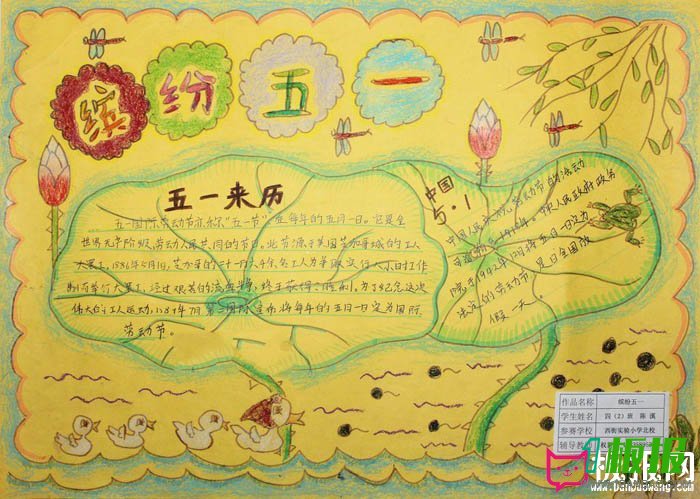 缤纷五一
五一来历
五一国际劳动节亦称"五一节",在每年的五月一日。它是全
世界无产阶级、劳动人民共同的节日。此节源于美国芝加哥城的工人
大罢工,1886年5月1日,芝加哥的二十一万六千余名工人为争取实行八小时工作
制而举行大罢工,经过艰苦的流血斗争,终于获得了胜利。为了纪念这次
伟大的工人运动,1889年7月第二国际宣布将每年的五月一日定为国际
劳动节。
中国
5.1
中国人民
劳动节的活动
中央人民政府政务
院于 12月将五月一日定为
法定的劳动节,是日全国放
假一天。
作品名称 缤纷五一
学生姓名 四(2)班 陈溪
参赛学校 西街实验小学北校
辅导教
板报网
www.banbaowang.com